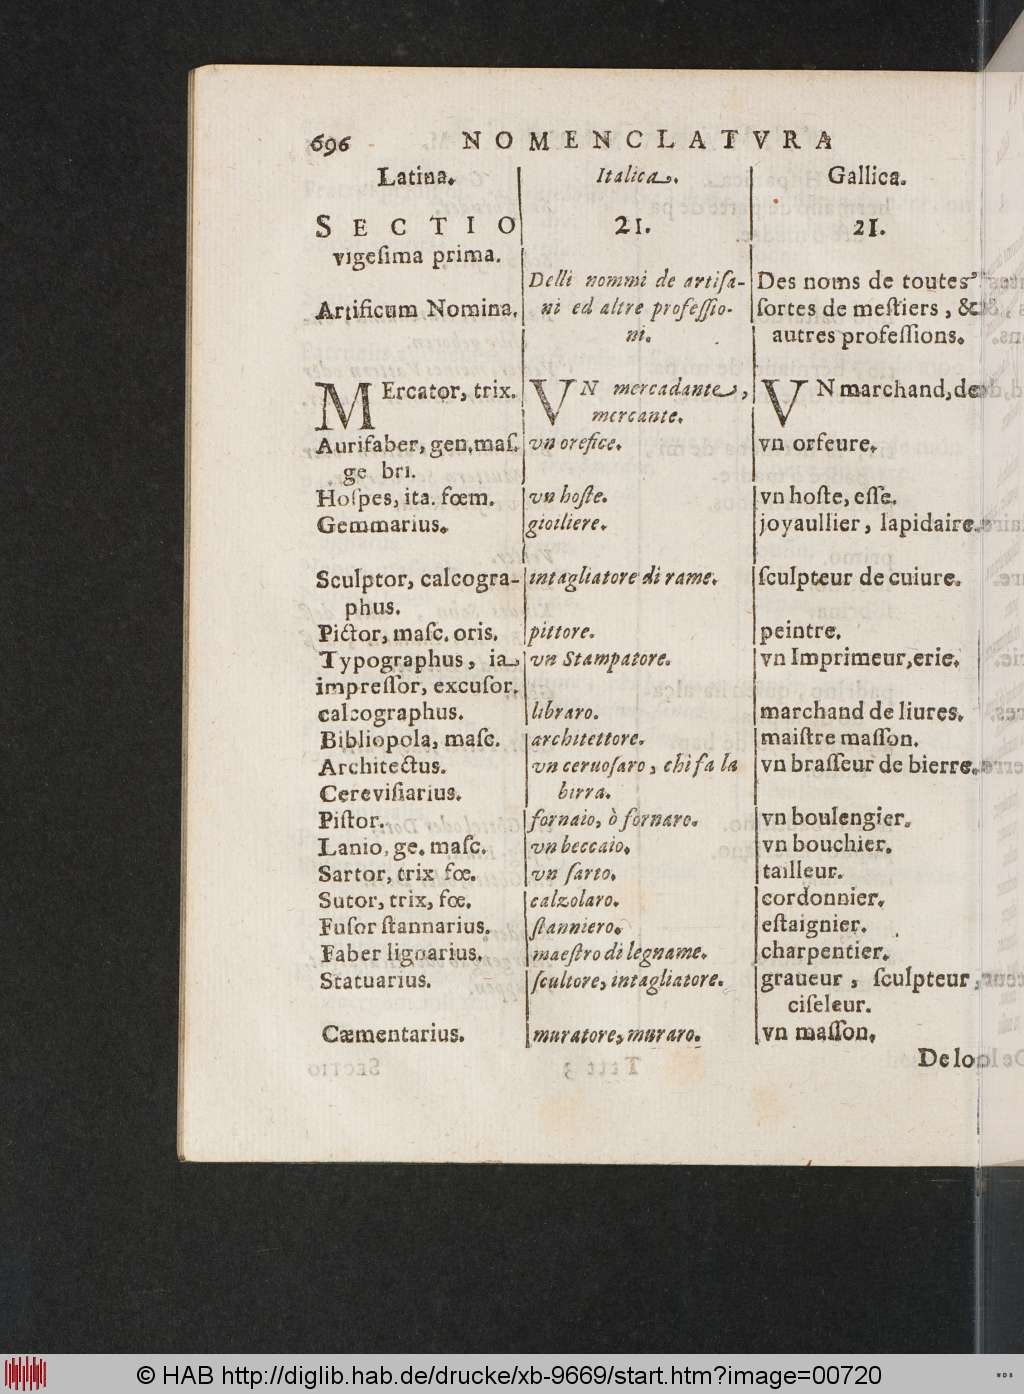 696 NOMENCLATVRA
Latina. Italica. Gallica.
SECTIO 21. 21.
vigeſima prima.
Delli nommi de artiſa- Des noms de toutes
Artificum Nomina. ni ed altre profeſſio- ſortes de meſtiers, &
ni. autres profeſſions.
MErcator, trix. VN mercadante, VN marchand, de
mercante.
Aurifaber, gen. maſ. vn orefice. vn orfeure.
ge bri.
Hoſpes, ita. fœm. vn hoſte. vn hoſte, eſſe.
Gemmarius. gioiliere. joyaullier, lapidaire.
Sculptor, calcogra- intagliatore di rame. ſculpteur de cuiure.
phus.
Pictor, maſc. oris. pittore. peintre.
Typographus, ia vn Stampatore. vn Imprimeur, erie.
impreſſor, excuſor.
calcographus. libraro. marchand de liures.
Bibliopola, maſc. architettore. maiſtre maſſon.
Architectus. vn ceruoſaro, chi fa la vn braſſeur de bierre.
Cereviſiarius. birra.
Piſtor. fornaio, ò fornaro. vn boulengier.
Lanio, ge. maſc. vn beccaio. vn bouchier.
Sartor, trix fœ. vn ſarto. tailleur.
Sutor, trix, fœ. calzolaro. cordonnier.
Fuſor ſtannarius. ſtanniero. eſtaignier.
Faber lignarius. maeſtro di legname. charpentier.
Statuarius. ſcultore, intagliatore. graueur, ſculpteur,
ciſeleur.
Cæmentarius. muratore, muraro. vn maſſon.
© HAB http://diglib.hab.de/drucke/xb-9669/start.htm?image=00720